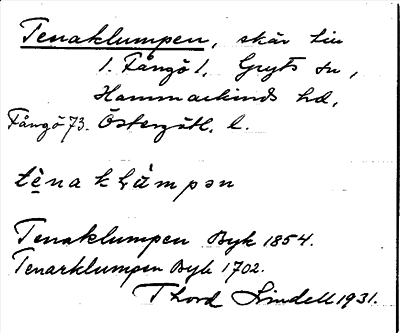 Tenaklumpen, skär
1. Fångö 1, Gryts sn,
Hammarkinds hd,
Fångö 73. Östergötl. l.
tèna kl̥ùmpən
Tenaklumpen Byk 1854.
Tenarklumpen Byk 1702.
Thord Lindell 1931.